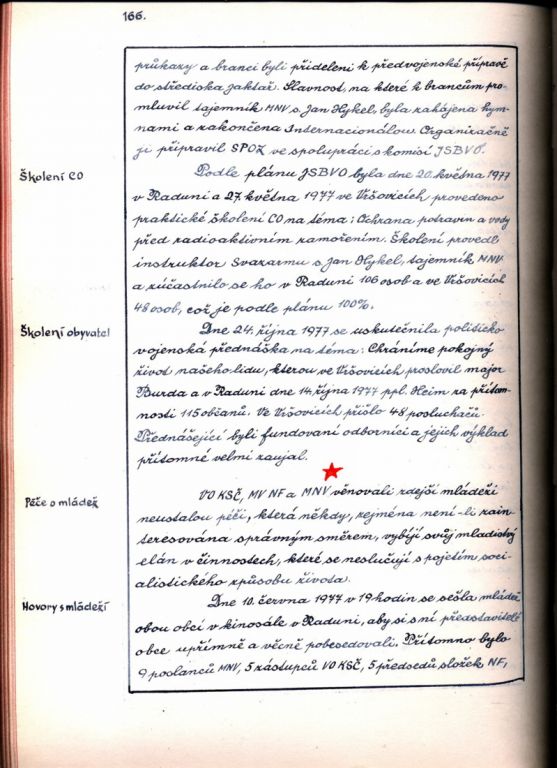 166.
průkazy a branci byli přiděleni k předvojenské přípravě
do střediska Jaktař. Slavnost, na které k brancům pro-
mluvil tajemník MNV s. Jan Hykel, byla zahájena hym-
nami a zakončena Internacionálou. Organizačně
ji připravil SPOZ ve spolupráci s komisí JSBVO.
Školení CO
Podle plánu JSBVO byla dne 20. května 1977
v Raduni a 27. května 1977 ve Vršovicích provedeno
praktické školení CO na téma: Ochrana potravin a vody
před radioaktivním zamořením. Školení provedl
instruktor Svazarmu s. Jan Hykel, tajemník MNV
a zúčastnilo se ho v Raduni 106 osob a ve Vršovicích
48 osob, což je podle plánu 100%.
Školení obyvatel
Dne 24. října 1977 se uskutečnila politicko
vojenská přednáška na téma: Chráníme pokojný
život našeho lidu, kterou ve Vršovicích proslovil major
Burda a v Raduni dne 14. října 1977 ppl. Heim za přítom-
nosti 115 občanů. Ve Vršovicích přišlo 48 posluchačů.
Přednášející byli fundovaní odborníci a jejich výklad
přítomné velmi zaujal.
Péče o mládež
VO KSČ, MV NF a MNV věnovali zdejší mládeži
neustalou péči, která někdy, zejména není-li zain-
teresována správným směrem, vybíjí svůj mladistvý
elán v činnostech, které se neslučují s pojetím soci-
alistického způsobu života.
Hovory s mládeží
Dne 10. června 1977 v 19 hodin se sešla mládež
obou obcí v kinosále v Raduni, aby si s ní představitelé
obce upřímně a věcně pobesedovali. Přítomno bylo
9 poslanců MNV, 5 zástupců VO KSČ, 5 předsedů složek NF,